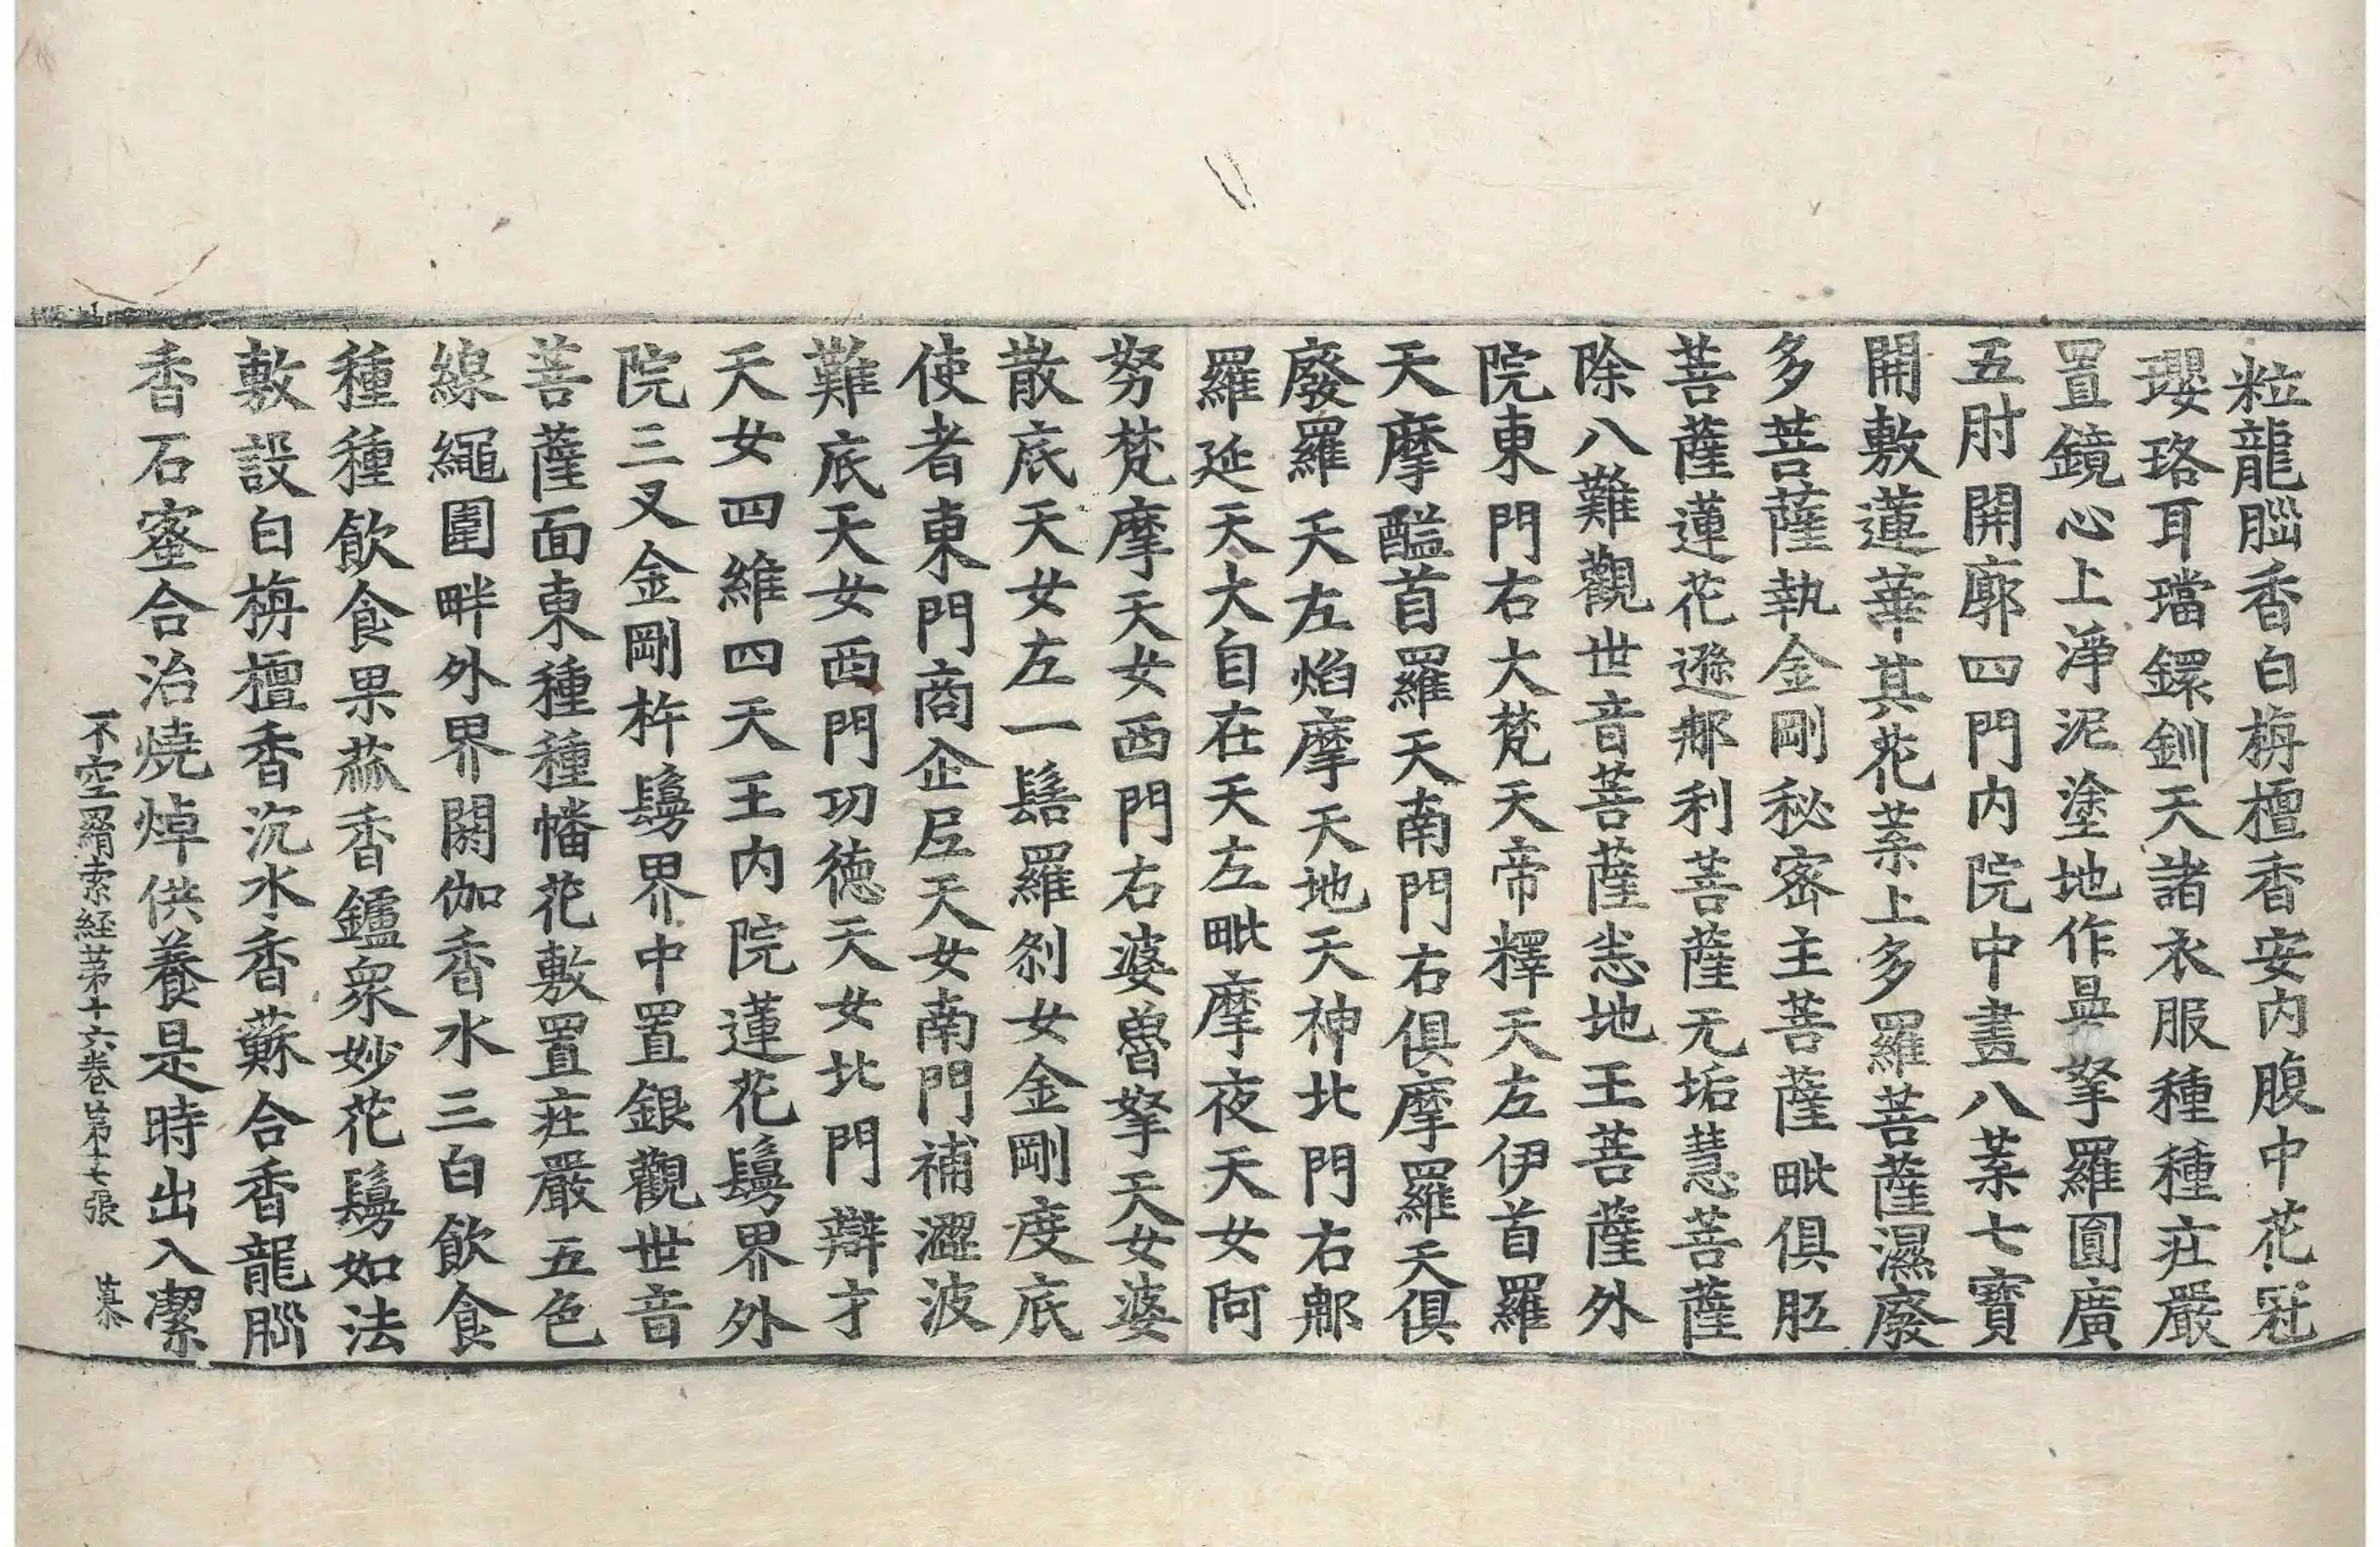 粒龍腦香白栴檀香安內腹中花冠
瓔珞耳璫鐶釧天諸衣服種種庄嚴
置鏡心上淨泥塗地作曼拏羅圓廣
五肘開廓四門內院中畫八葉七寶
開敷蓮華其花葉上多羅菩薩濕廢
多菩薩執金剛秘密主菩薩毗俱胝
菩薩蓮花遜那利菩薩无垢慧菩薩
除八難觀世音菩薩恙地王菩薩外
院東門右大梵天帝釋天左伊首羅
天摩醯首羅天南門右俱摩羅天俱
廢羅天左焰摩天地天神北門右那
羅延天大自在天左毗摩夜天女阿
努梵摩天女西門右婆嚕拏天女婆
散底天女左一髻羅剎女金剛度底
使者東門商企尼天女南門補澀波
難底天女西門功德天女北門辯才
天女四維四天王內院蓮花鬘界外
院三叉金剛杵鬘界中置銀觀世音
菩薩面東種種幡花敷置庄嚴五色
線繩圍畔外界閼伽香水三白飲食
種種飲食果蓏香鑪眾妙花鬘如法
敷設白栴檀香沉水香蘇合香龍腦
香石蜜合治燒焯供養是時出入潔
不空羂索経苐十六卷苐十七張 慕